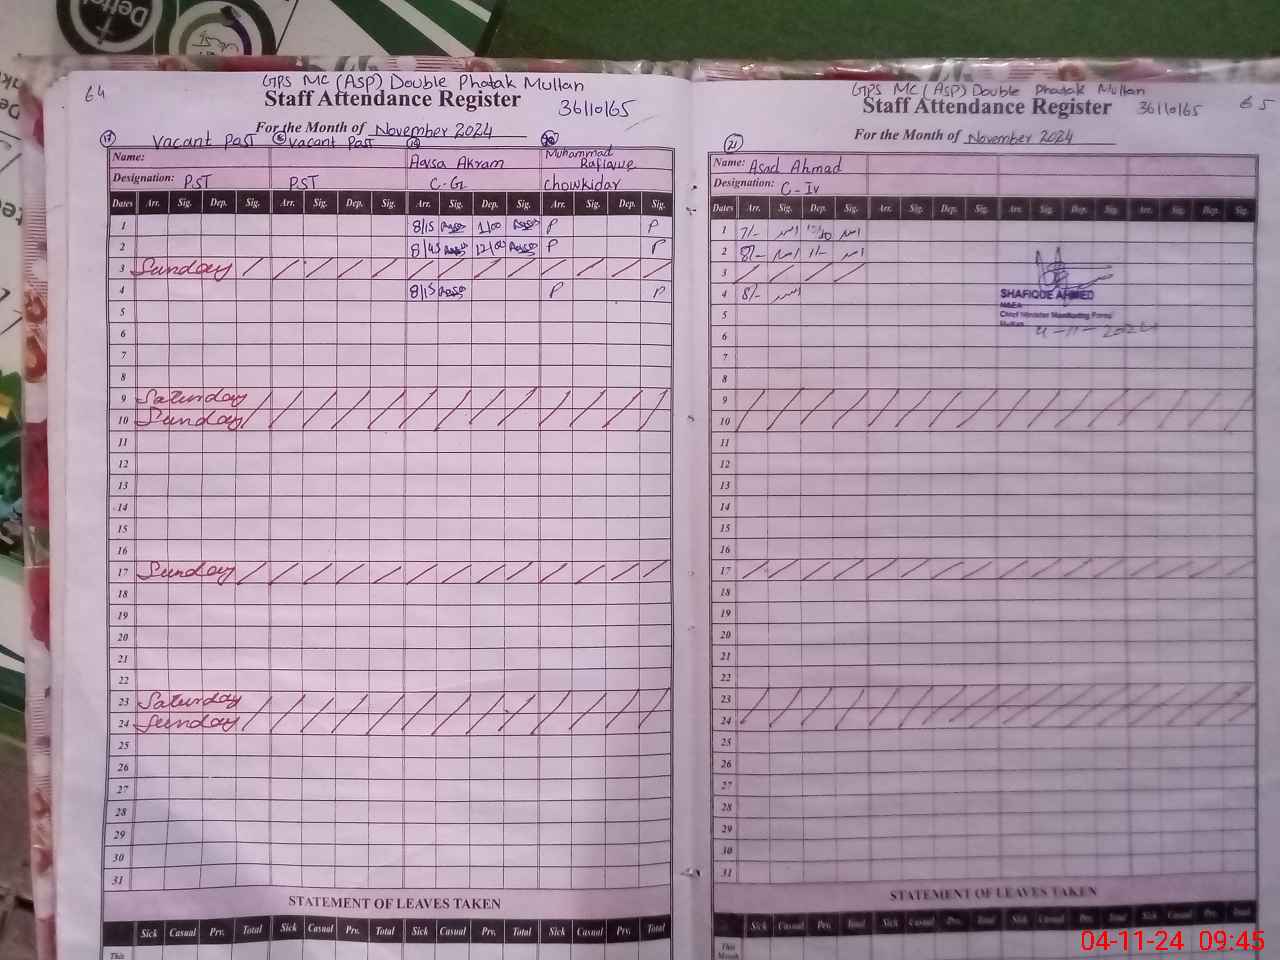 Dettol
64
GPS MC (ASP) Double Phatak Multan
Staff Attendance Register
36110165
For the Month of November 2024
17 Vacant Post 18 Vacant Post 19 20
Name: Aqsa Akram Muhammad Rafique
Designation: PST PST C-G Chowkidar
Dates Arr. Sig. Dep. Sig. Arr. Sig. Dep. Sig. Arr. Sig. Dep. Sig. Arr. Sig. Dep. Sig.
1 8/15 1/00 P P
2 8/45 12/00 P P
3 Sunday
4 8/15 P P
5
6
7
8
9 Saturday
10 Sunday
11
12
13
14
15
16
17 Sunday
18
19
20
21
22
23 Saturday
24 Sunday
25
26
27
28
29
30
31
STATEMENT OF LEAVES TAKEN
Sick Casual Prv. Total Sick Casual Prv. Total Sick Casual Prv. Total Sick Casual Prv. Total
This
GPS MC (ASP) Double Phatak Multan
Staff Attendance Register
36110165
65
For the Month of November 2024
21
Name: Asad Ahmad
Designation: C-IV
Dates Arr. Sig. Dep. Sig. Arr. Sig. Dep. Sig. Arr. Sig. Dep. Sig. Arr. Sig. Dep. Sig.
1 7/- اسد اسد
2 8/- اسد 1/- اسد
3
4 8/- اسد
5
6
7
8
9
10
11
12
13
14
15
16
17
18
19
20
21
22
23
24
25
26
27
28
29
30
31
SHAFIQUE AHMED
M&EA
Chief Minister Monitoring Force
Multan
4-11-2024
STATEMENT OF LEAVES TAKEN
Sick Casual Prv. Total Sick Casual Prv. Total Sick Casual Prv. Total Sick Casual Prv. Total
This
Month
04-11-24 09:45